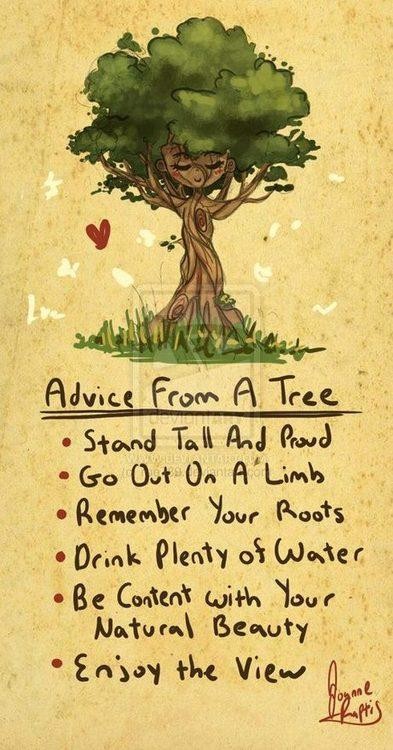 Love
Advice From A Tree
• Stand Tall And Proud
• Go Out On A Limb
• Remember Your Roots
• Drink Plenty of Water
• Be Content with Your
Natural Beauty
• Enjoy the View
Joanne
Raptis